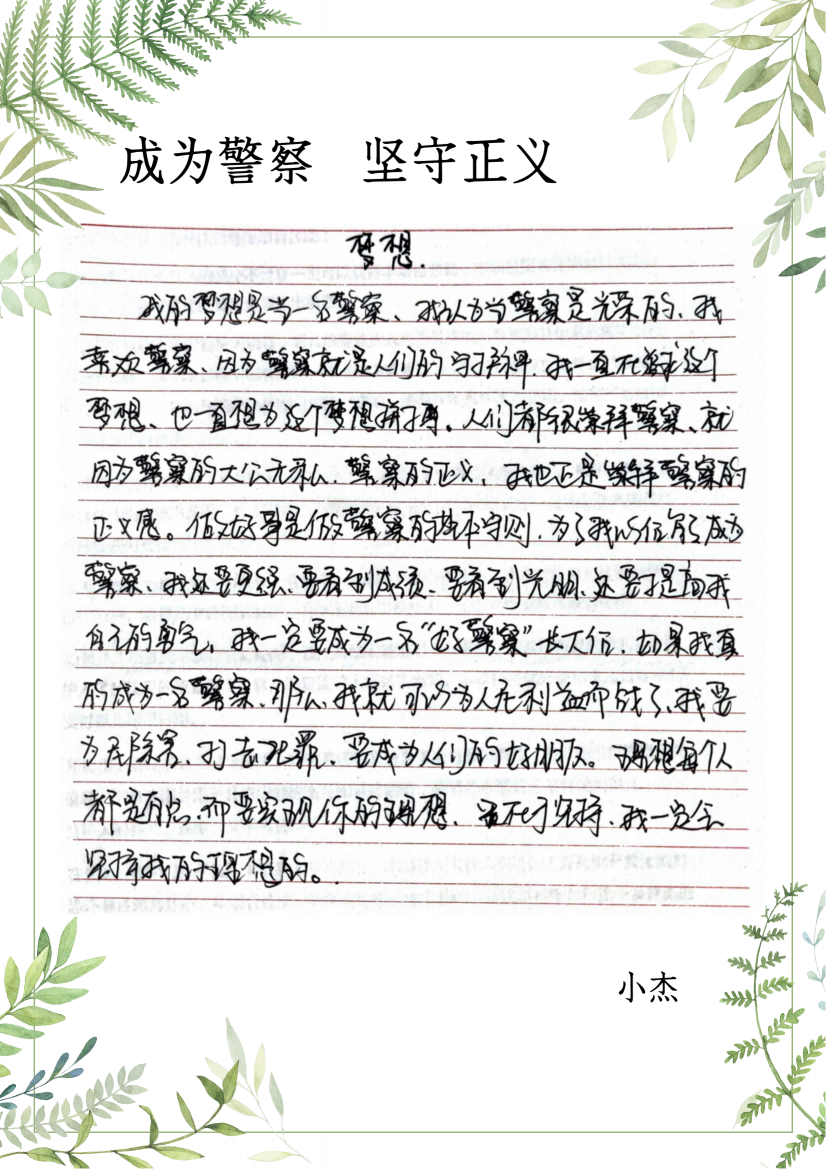 成为警察 坚守正义
梦想.
我的梦想是当一名警察、我认为当警察是光荣的、我
喜欢警察、因为警察就是人们的守护神、我一直在追求这个
梦想、也一直想为这个梦想奋斗、人们都很崇拜警察、就
因为警察的大公无私、警察的正义、我也正是崇拜警察的
正义感。做好事是做警察的基本守则、为了我以后能成为
警察、我还要更强、要看到成绩、要看到光明、还要
自己的勇气、我一定要成为一名“好警察”长大后、如果我真
的成为一名警察、那么、我就可以为人先利益而战了、我要
为民除害、打击犯罪、要成为人们的好朋友。理想每个人
都是有的、而要实现你的理想、在于坚持、我一定会
坚持我的理想的。
小杰